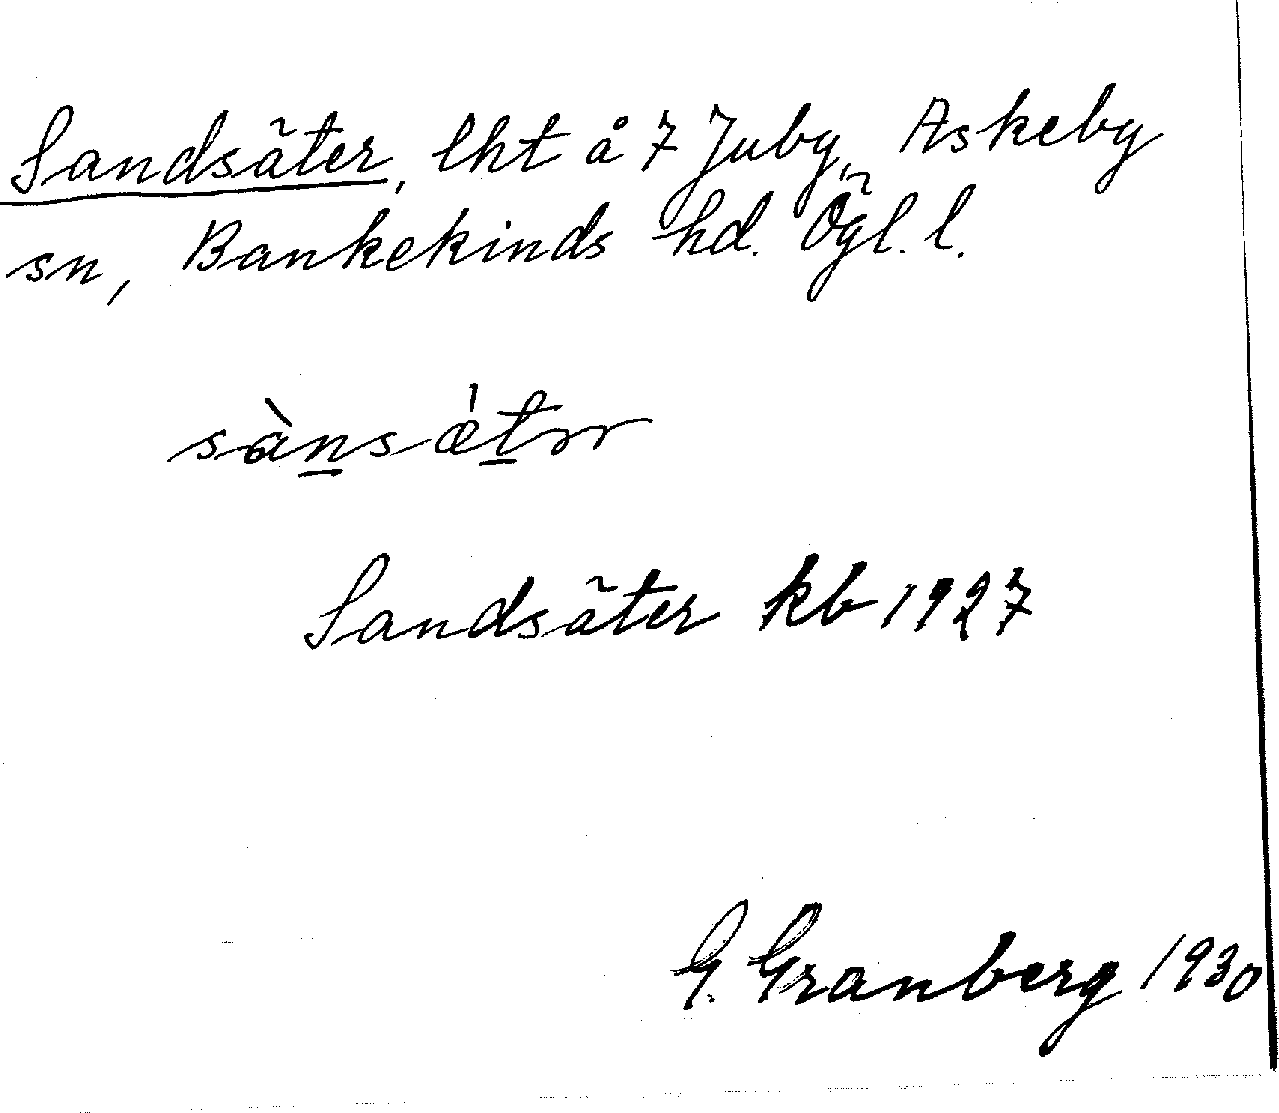 Sandsäter, lht å 7 Juby, Askeby
sn, Bankekinds hd. Ögl. l.
sànsǽtər
Sandsäter kb 1927
G. Granberg 1930